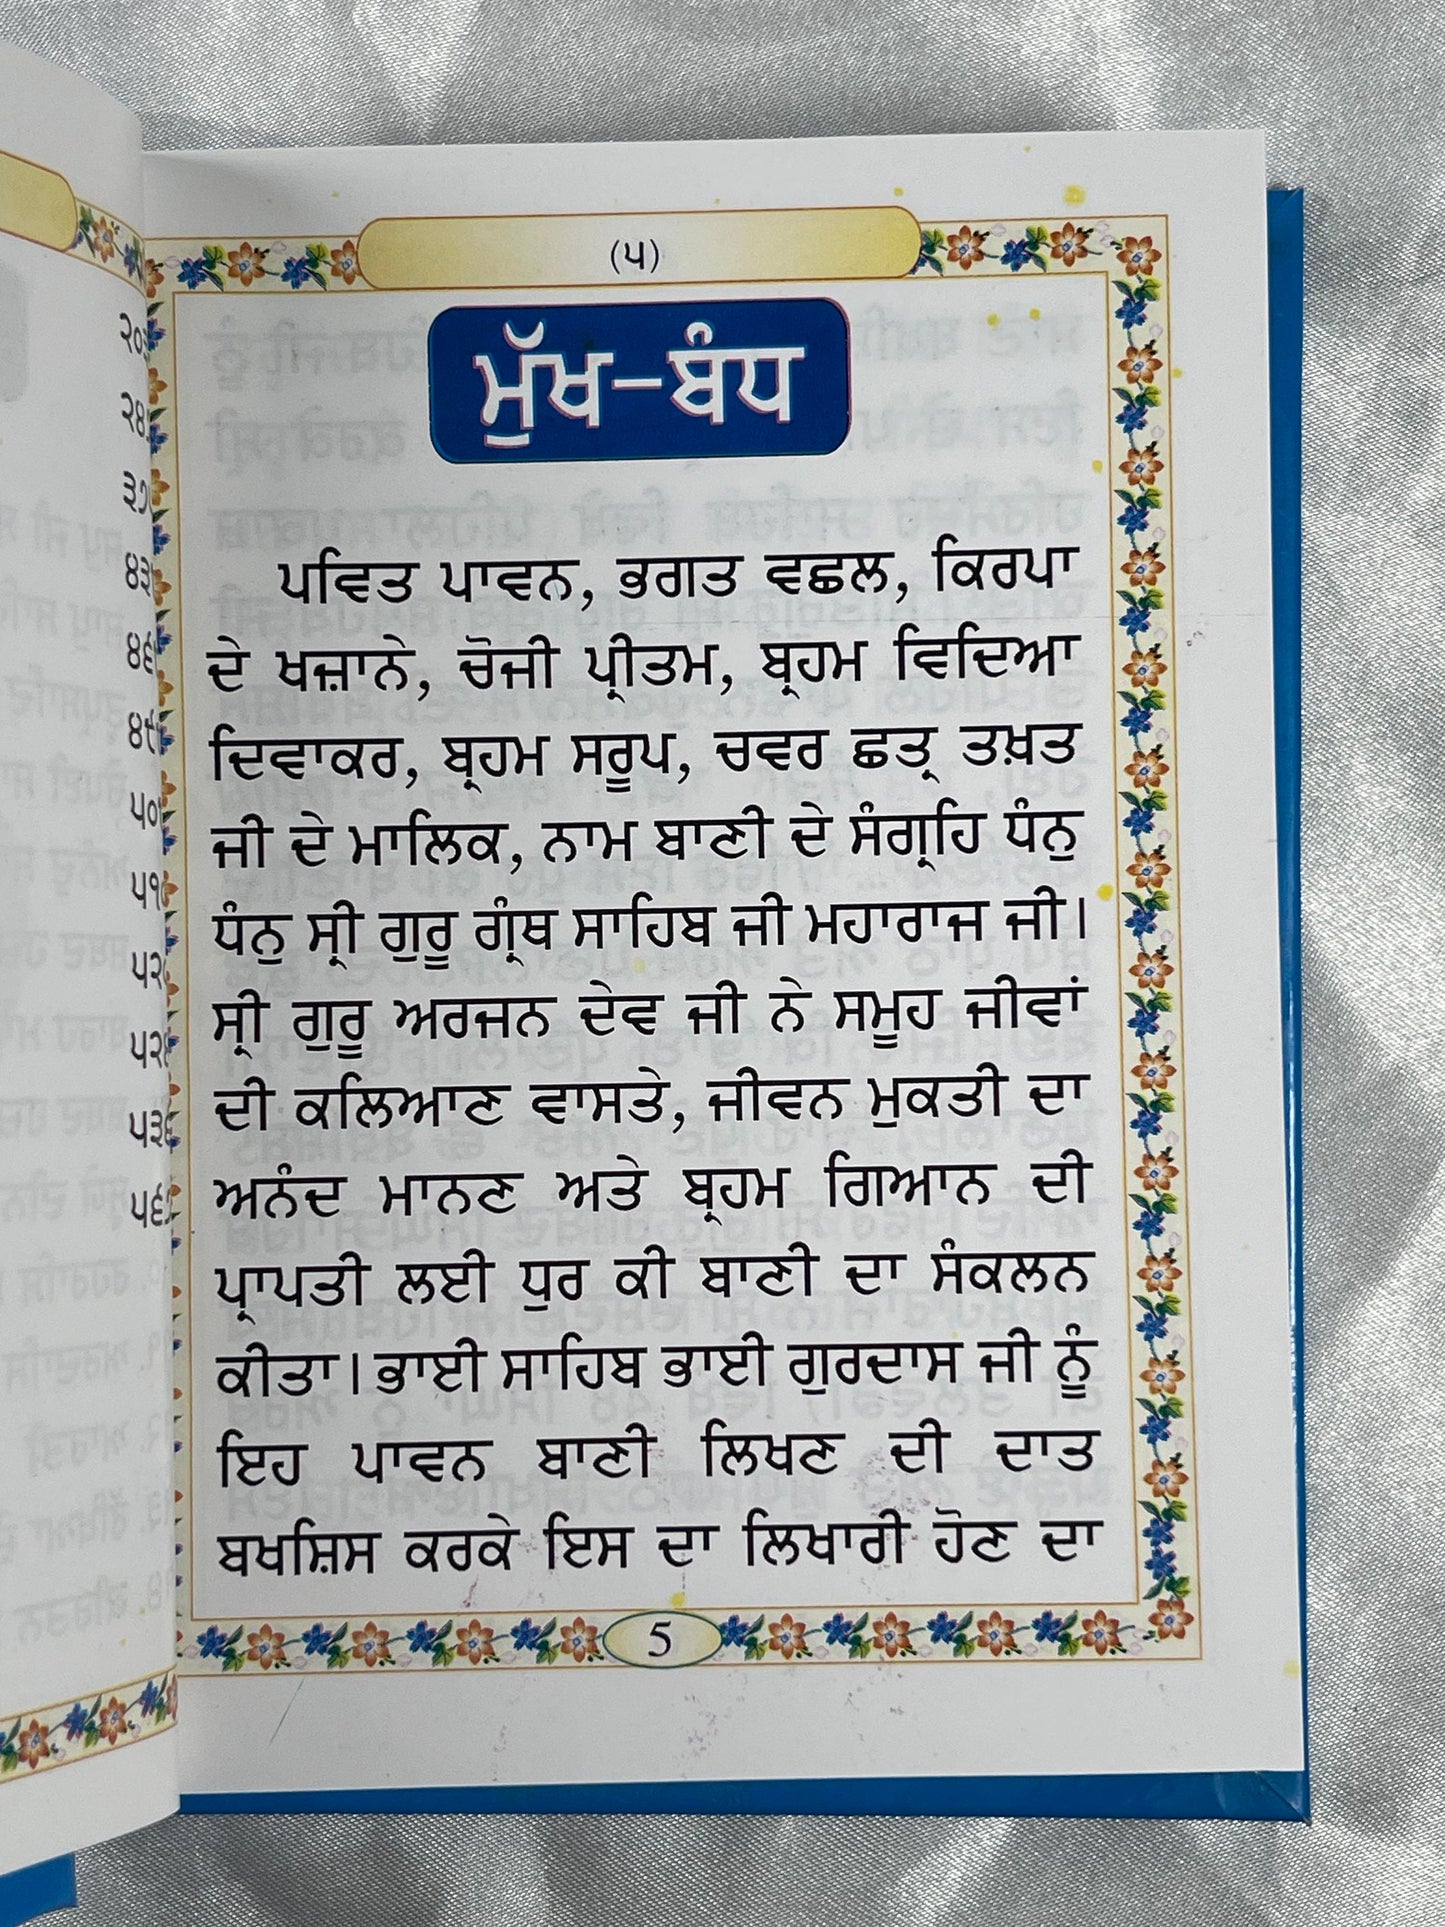 ੨੦
੨੪
੩੭
੪੩
੪੬
੪੯
੫੦
੫੧
੫੨
੫੨੪
੫੩੬
੫੬
(੫)
ਮੁੱਖ-ਬੰਧ
ਪਵਿਤ ਪਾਵਨ, ਭਗਤ ਵਛਲ, ਕਿਰਪਾ
ਦੇ ਖਜ਼ਾਨੇ, ਚੋਜੀ ਪ੍ਰੀਤਮ, ਬ੍ਰਹਮ ਵਿਦਿਆ
ਦਿਵਾਕਰ, ਬ੍ਰਹਮ ਸਰੂਪ, ਚਵਰ ਛਤ੍ਰ ਤਖ਼ਤ
ਜੀ ਦੇ ਮਾਲਿਕ, ਨਾਮ ਬਾਣੀ ਦੇ ਸੰਗ੍ਰਹਿ ਧੰਨੁ
ਧੰਨੁ ਸ੍ਰੀ ਗੁਰੂ ਗ੍ਰੰਥ ਸਾਹਿਬ ਜੀ ਮਹਾਰਾਜ ਜੀ।
ਸ੍ਰੀ ਗੁਰੂ ਅਰਜਨ ਦੇਵ ਜੀ ਨੇ ਸਮੂਹ ਜੀਵਾਂ
ਦੀ ਕਲਿਆਣ ਵਾਸਤੇ, ਜੀਵਨ ਮੁਕਤੀ ਦਾ
ਅਨੰਦ ਮਾਨਣ ਅਤੇ ਬ੍ਰਹਮ ਗਿਆਨ ਦੀ
ਪ੍ਰਾਪਤੀ ਲਈ ਧੁਰ ਕੀ ਬਾਣੀ ਦਾ ਸੰਕਲਨ
ਕੀਤਾ। ਭਾਈ ਸਾਹਿਬ ਭਾਈ ਗੁਰਦਾਸ ਜੀ ਨੂੰ
ਇਹ ਪਾਵਨ ਬਾਣੀ ਲਿਖਣ ਦੀ ਦਾਤ
ਬਖਸ਼ਿਸ ਕਰਕੇ ਇਸ ਦਾ ਲਿਖਾਰੀ ਹੋਣ ਦਾ
5